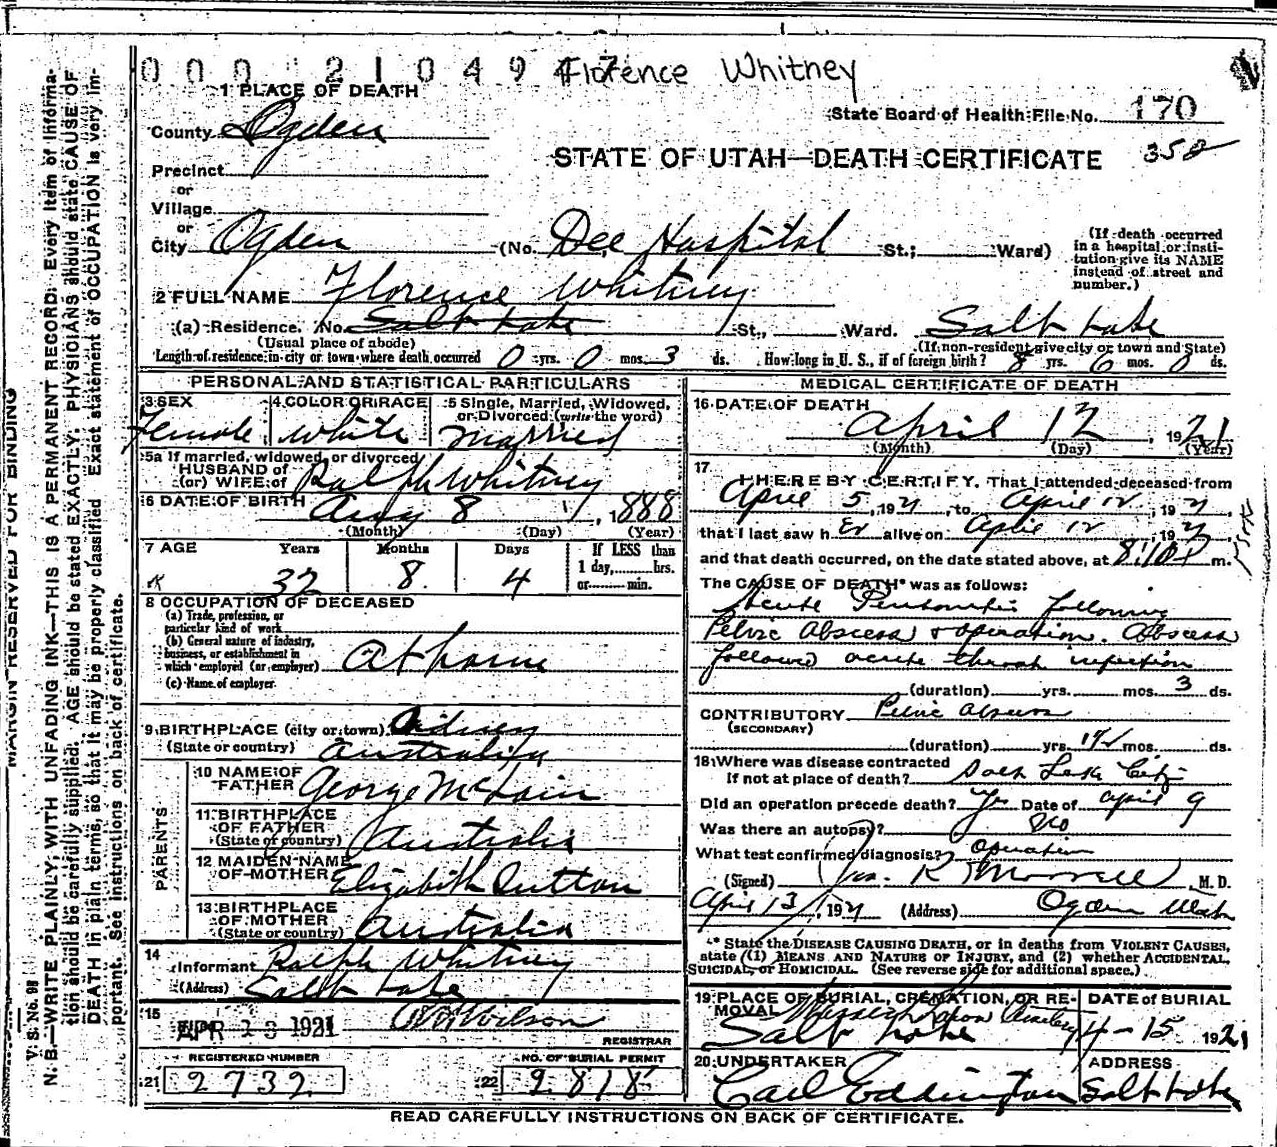 000 21049 47 Florence Whitney
1 PLACE OF DEATH
State Board of Health File No. 170
County Ogden
358
STATE OF UTAH—DEATH CERTIFICATE
Precinct
or
Village
or
City Ogden (No. Dee Hospital St.; Ward)
(If death occurred in a hospital or institution give its NAME instead of street and number.)
2 FULL NAME Florence Whitney
(a) Residence. No. Salt Lake St., Ward. Salt Lake
(Usual place of abode) (If non-resident give city or town and State)
Length of residence in city or town where death occurred 0 yrs. 0 mos. 3 ds. How long in U. S., if of foreign birth? 8 yrs. 6 mos. 0 ds.
PERSONAL AND STATISTICAL PARTICULARS
3 SEX 4 COLOR OR RACE 5 Single, Married, Widowed, or Divorced (write the word)
Female white married
5a If married, widowed, or divorced
HUSBAND of
(or) WIFE of Ralph Whitney
6 DATE OF BIRTH Aug 8, 1888
(Month) (Day) (Year)
7 AGE Years Months Days If LESS than
1 day, hrs.
or min.
32 8 4
8 OCCUPATION OF DECEASED
(a) Trade, profession, or
particular kind of work
(b) General nature of industry,
business, or establishment in
which employed (or employer) At home
(c) Name of employer
9 BIRTHPLACE (city or town) Sidney
(State or country) Australia
PARENTS
10 NAME OF
FATHER George McLain
11 BIRTHPLACE
OF FATHER
(State or country) Australia
12 MAIDEN NAME
OF MOTHER Elizabeth Sutton
13 BIRTHPLACE
OF MOTHER
(State or country) Australia
14
Informant Ralph Whitney
(Address) Salt Lake
15 APR 23 1921 Wilson
REGISTRAR
REGISTERED NUMBER NO. OF BURIAL PERMIT
21 2732 22 2818
MEDICAL CERTIFICATE OF DEATH
16 DATE OF DEATH
April 12, 1921
(Month) (Day) (Year)
17
I HEREBY CERTIFY, That I attended deceased from
April 5, 1921, to April 12, 1921,
that I last saw her alive on April 12, 1921
and that death occurred, on the date stated above, at 8:10 P m.
The CAUSE OF DEATH* was as follows:
Acute Peritonitis following
Pelvic Abscess & operation. Abscess
followed acute throat infection
(duration) yrs. mos. 3 ds.
CONTRIBUTORY Pelvic Abscess
(SECONDARY)
(duration) yrs. 1½ mos. ds.
18 Where was disease contracted
If not at place of death? Salt Lake City
Did an operation precede death? Yes Date of April 9
Was there an autopsy? No
What test confirmed diagnosis? Operation
(Signed) Jos. R Morrell, M. D.
April 13, 1921 (Address) Ogden Utah
* State the DISEASE CAUSING DEATH, or in deaths from VIOLENT CAUSES,
state (1) MEANS AND NATURE OF INJURY, and (2) whether ACCIDENTAL,
SUICIDAL, or HOMICIDAL. (See reverse side for additional space.)
19 PLACE OF BURIAL, CREMATION, OR REMOVAL DATE of BURIAL
Salt Lake 4-15 1921
20 UNDERTAKER ADDRESS
Carl Eddington Salt Lake
READ CAREFULLY INSTRUCTIONS ON BACK OF CERTIFICATE.
MARGIN RESERVED FOR BINDING
V. S. No. 98
N. B.—WRITE PLAINLY, WITH UNFADING INK—THIS IS A PERMANENT RECORD. Every item of information should be carefully supplied. AGE should be stated EXACTLY. PHYSICIANS should state CAUSE OF DEATH in plain terms, so that it may be properly classified. Exact statement of OCCUPATION is very important. See instructions on back of certificate.